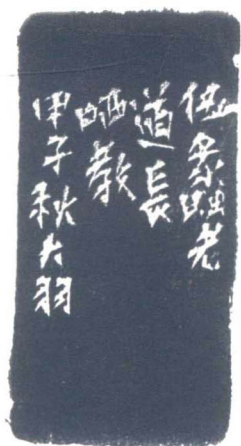 伍蠡老
道長
哂教
甲子秋大羽